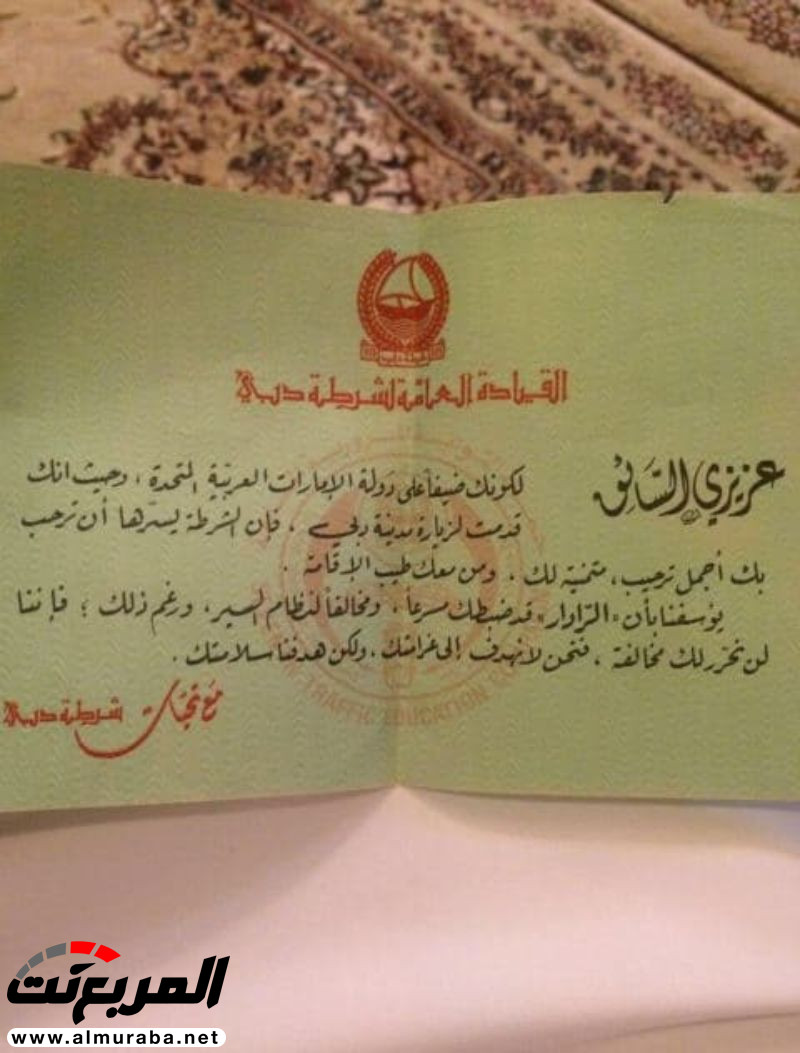 القيادة العامة لشرطة دبي
عزيزي السائق
لكونك ضيفاً على دولة الإمارات العربية المتحدة، وحيث انك
قدمت لزيارة مدينة دبي، فإن الشرطة يسرّها أن ترحب
بك أجمل ترحيب، متمنية لك، ومن معك طيب الإقامة.
يؤسفنا بأن "الرّادار" قد ضبطك مسرعاً، ومخالفاً لنظام السير، ورغم ذلك؛ فإننا
لن نحرّر لك مخالفة، فنحن لا نهدف إلى غرامتك، ولكن هدفنا سلامتك.
مع تحيات شرطة دبي
TRAFFIC EDUCATION
المربع نت
www.almuraba.net